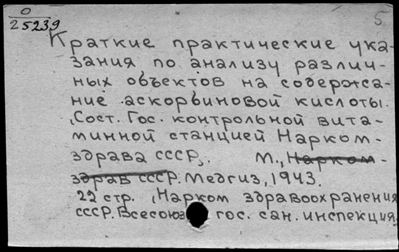 О
25239
5.
Краткие практические ука-
зания по анализу различ-
ных объектов на содержа-
ние аскорбиновой кислоты.
Сост. Гос. контрольной вита-
минной станцией Нарком-
здрава СССР. М., Нарком-
здрав СССР. Медгиз, 1943.
22 стр., Нарком здравоохранения
СССР. Всесоюз гос. сан. инспекция